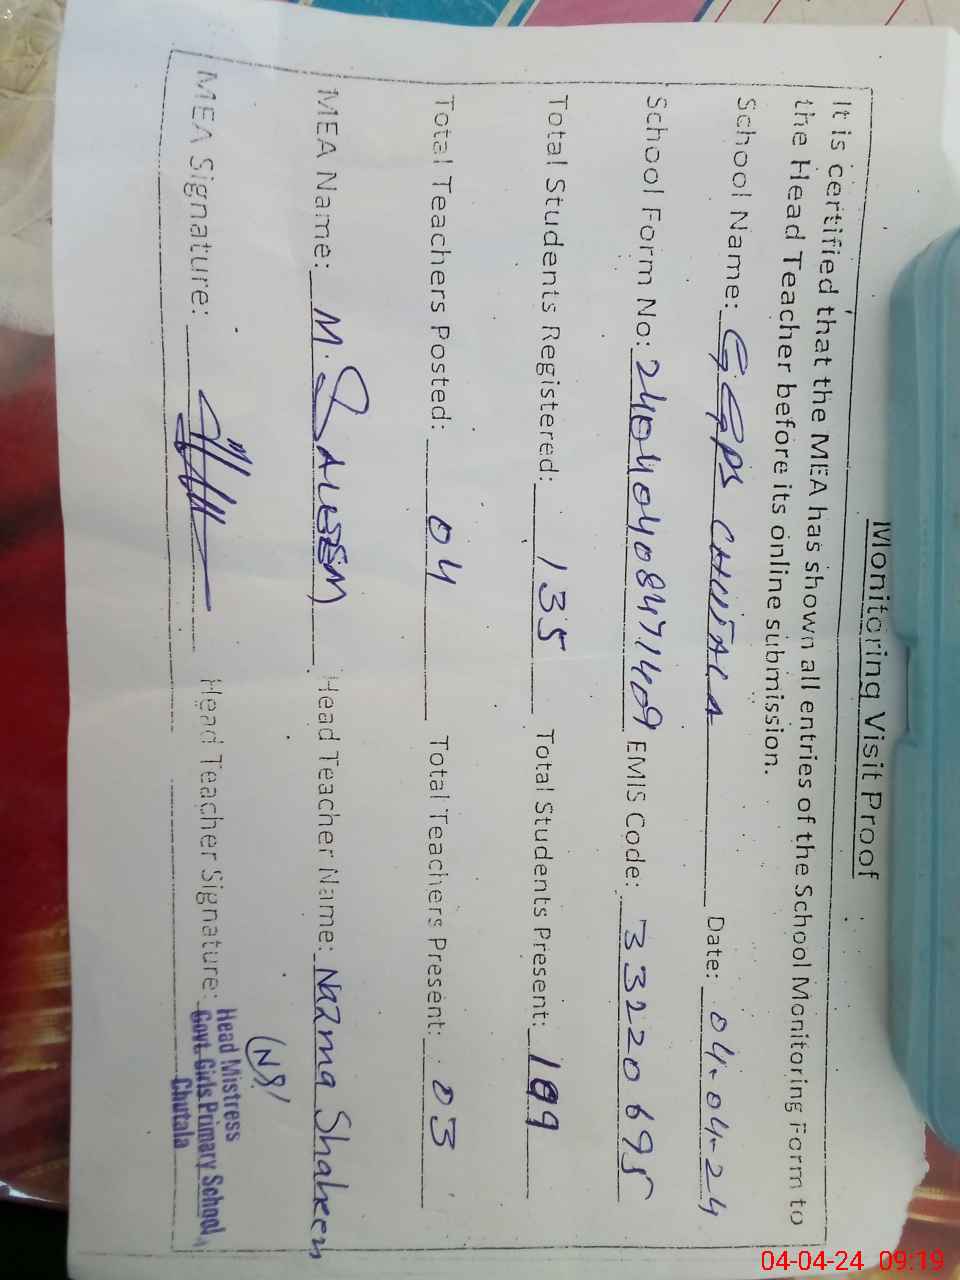 Monitoring Visit Proof
It is certified that the MEA has shown all entries of the School Monitoring Form to
the Head Teacher before its online submission.
School Name: GGPS CHUTALA Date: 04-04-24
School Form No: EMIS Code: 33220695
Total Students Registered: 135 Total Students Present: 109
Total Teachers Posted: 04 Total Teachers Present: 03
MEA Name: M. SALEEM Head Teacher Name: Naazma Shaheen
MEA Signature: Head Teacher Signature:
Head Mistress
Govt. Girls Primary School
Chutala
04-04-24 09:19